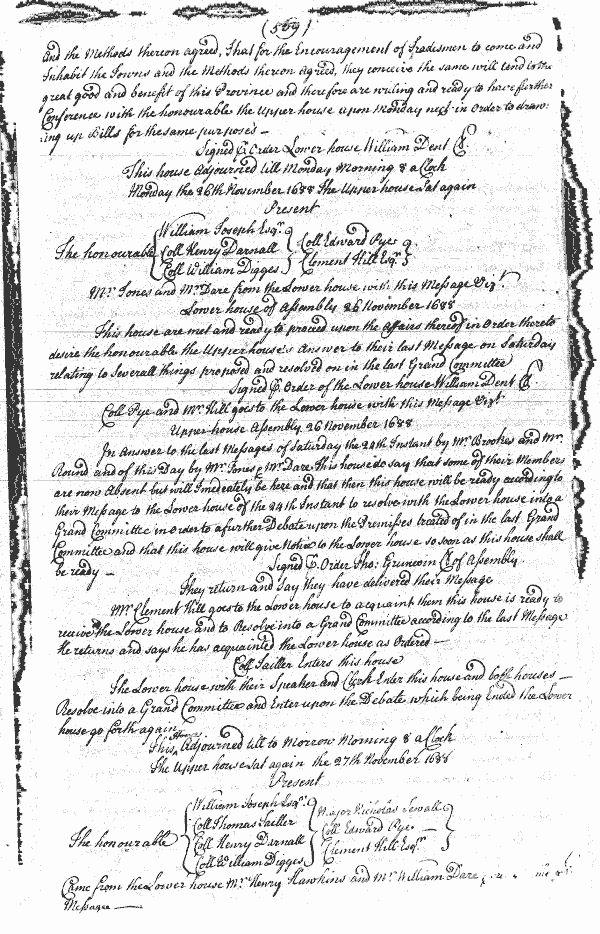 (569)
And the Methods thereon agreed, That for the Encouragement of Tradesmen to come and
Inhabit the Towns and the Methods thereon Agreed, they conceive the same will tend to the
great good and benefit of this Province and therefore are willing and ready to have further
Conference with the honourable the Upper house upon Monday next in Order to draw
:ing up Bills for the same purposes —
Signed p. Order Lower house William Dent Cl.
This house Adjourned till Monday Morning 8 a Clock
Monday the 26th November 1688 The Upper house Sat again
Present
The honourable
William Joseph Esqr.
Coll Henry Darnall
Coll William Digges
Coll Edward Pye
Clement Hill Esqr.
Mr. Jones and Mr. Dare from the Lower house with this Message Vizt.
Lower house of Assembly 26 November 1688
This house are met and ready to proceed upon the Affairs thereof in Order thereto
desire the honourable the Upper house's Answer to their last Message on Saturday
relating to Severall things proposed and resolved on in the last Grand Committee
Signed p. Order of the Lower house William Dent Cl.
Coll Pye and Mr. Hill goes to the Lower house with this Message Vizt.
Upper house Assembly 26 November 1688
In Answer to the last Messages of Saturday the 24th Instant by Mr. Brookes and Mr.
Round and of this Day by Mr. Jones & Mr. Dare This house do say that some of their Members
are now Absent but will Imediately be here and that then this house will be ready according to
their Message to the Lower house of the 24th Instant to resolve with the Lower house into a
Grand Committee in order to a further Debate upon the Premisses treated of in the last Grand
Committee and that this house will give Notice to the Lower house so soon as this house shall
be ready — Signed p. Order Tho: Grunwin Cl of Assembly
They return and say they have delivered their Message
Mr. Clement Hill goes to the Lower house to acquaint them this house is ready to
receive the Lower house and to Resolve into a Grand Committee according to the last Message
He returns and says he has acquainted the Lower house as Ordered —
Coll Tailler Enters this house
The Lower house with their Speaker and Clerk Enter this house and both houses —
Resolve into a Grand Committee and Enter upon the Debate which being Ended the Lower
house go forth again
This House Adjourned till to Morrow Morning 8 a Clock
The Upper house Sat again the 27th November 1688
Present
The honourable
William Joseph Esqr.
Coll Thomas Tailler
Coll Henry Darnall
Coll William Digges
Major Nicholas Sewall
Coll Edward Pye
Clement Hill Esqr.
Came from the Lower house Mr. Henry Hawkins and Mr. William Dare
Message —